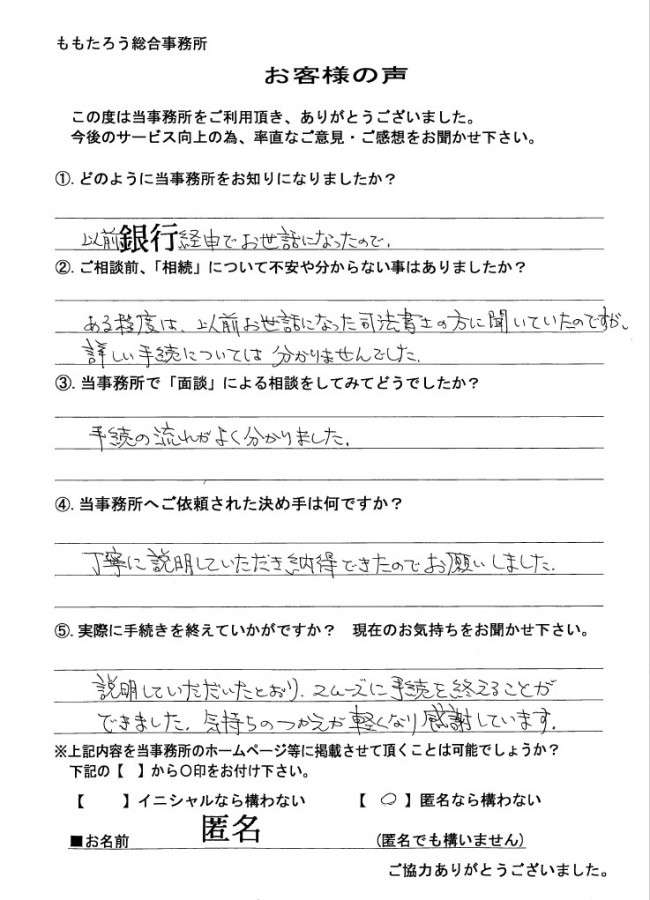 ももたろう総合事務所
お客様の声
この度は当事務所をご利用頂き、ありがとうございました。
今後のサービス向上の為、率直なご意見・ご感想をお聞かせ下さい。
①. どのように当事務所をお知りになりましたか？
以前銀行経由でお世話になったので.
②. ご相談前、「相続」について不安や分からない事はありましたか？
ある程度は、以前お世話になった司法書士の方に聞いていたのですが、
詳しい手続については分かりませんでした.
③. 当事務所で「面談」による相談をしてみてどうでしたか？
手続の流れがよく分かりました.
④. 当事務所へご依頼された決め手は何ですか？
丁寧に説明していただき納得できたのでお願いしました.
⑤. 実際に手続きを終えていかがですか？　現在のお気持ちをお聞かせ下さい。
説明していただいたとおり、スムーズに手続を終えることが
できました. 気持ちのつかえが軽くなり感謝しています.
※上記内容を当事務所のホームページ等に掲載させて頂くことは可能でしょうか？
下記の【　】から〇印をお付け下さい。
【　　】イニシャルなら構わない　　【　〇　】匿名なら構わない
■お名前　匿名　(匿名でも構いません)
ご協力ありがとうございました。